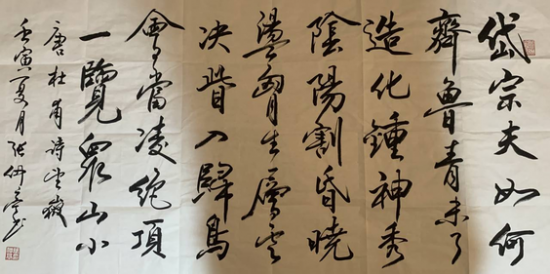 岱宗夫如何
齊魯青未了
造化鍾神秀
陰陽割昏曉
盪胷生層云
决眥入歸鳥
會當凌絶頂
一覽眾山小
唐杜甫詩望嶽
壬寅夏月張